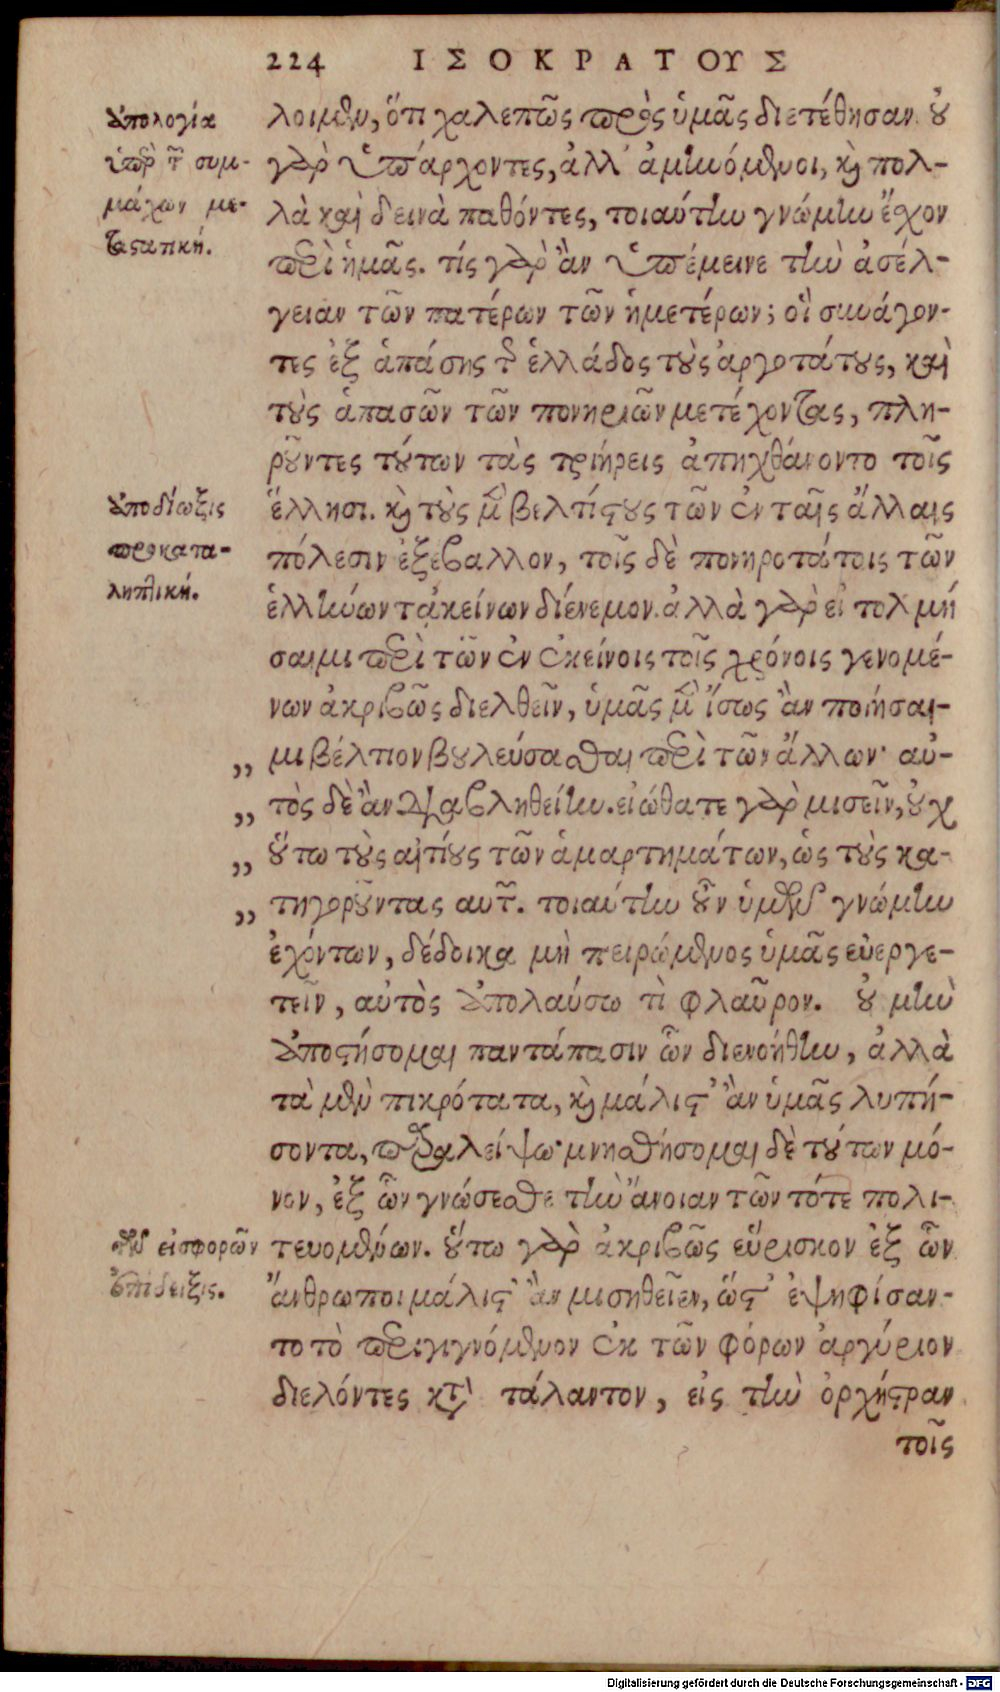 224 ΙΣΟΚΡΑΤΟΥΣ
λοιμεν, ὅτι χαλεπῶς πρὸς ὑμᾶς διετέθησαν. οὐ
γὰρ ὑπάρχοντες, ἀλλ' ἀμυνόμενοι, καὶ πολ-
λὰ καὶ δεινὰ παθόντες, τοιαύτην γνώμην ἔχον
περὶ ἡμᾶς. τίς γὰρ ἂν ὑπέμεινε τὴν ἀσέλ-
γειαν τῶν πατέρων τῶν ἡμετέρων; οἳ συνάγον-
τες ἐξ ἁπάσης τῆς ἑλλάδος τοὺς ἀργοτάτους, καὶ
τοὺς ἁπασῶν τῶν πονηριῶν μετέχοντας, πλη-
ροῦντες τούτων τὰς τριήρεις ἀπηχθάνοντο τοῖς
ἕλλησι. καὶ τοὺς μὲν βελτίστους τῶν ἐν ταῖς ἄλλαις
πόλεσιν ἐξέβαλλον, τοῖς δὲ πονηροτάτοις τῶν
ἑλλήνων τἀκείνων διένεμον. ἀλλὰ γὰρ εἰ τολμή
σαιμι περὶ τῶν ἐν ἐκείνοις τοῖς χρόνοις γενομέ-
νων ἀκριβῶς διελθεῖν, ὑμᾶς μὲν ἴσως ἂν ποιήσαι-
„ μι βέλτιον βουλεύσασθαι περὶ τῶν ἄλλων· αὐ-
„ τὸς δὲ ἂν διαβληθείην. εἰώθατε γὰρ μισεῖν, οὐχ
„ οὕτω τοὺς αἰτίους τῶν ἁμαρτημάτων, ὡς τοὺς κα-
„ τηγοροῦντας αὐτῶν. τοιαύτην οὖν ὑμῶν γνώμην
ἐχόντων, δέδοικα μὴ πειρώμενος ὑμᾶς εὐεργε-
τεῖν, αὐτὸς ἀπολαύσω τὶ φλαῦρον. οὐ μὴν
ἀποστήσομαι παντάπασιν ὧν διενοήθην, ἀλλὰ
τὰ μὲν πικρότατα, καὶ μάλιστ' ἂν ὑμᾶς λυπή-
σοντα, παραλείψω· μνησθήσομαι δὲ τούτων μό-
νον, ἐξ ὧν γνώσεσθε τὴν ἄνοιαν τῶν τότε πολι-
τευομένων. οὕτω γὰρ ἀκριβῶς εὕρισκον ἐξ ὧν
ἄνθρωποι μάλιστ' ἂν μισηθεῖεν, ὥστ' ἐψηφίσαν-
το τὸ περιγιγνόμενον ἐκ τῶν φόρων ἀργύριον
διελόντες κατὰ τάλαντον, εἰς τὴν ὀρχήστραν
τοῖς
ἀπολογία
ὑπὲρ τῶν συμ-
μάχων με-
ταστατική.
ὑποδίωξις
προκατα-
ληπτική.
τῶν εἰσφορῶν
ἐπίδειξις.
Digitalisierung gefördert durch die Deutsche Forschungsgemeinschaft - DFG